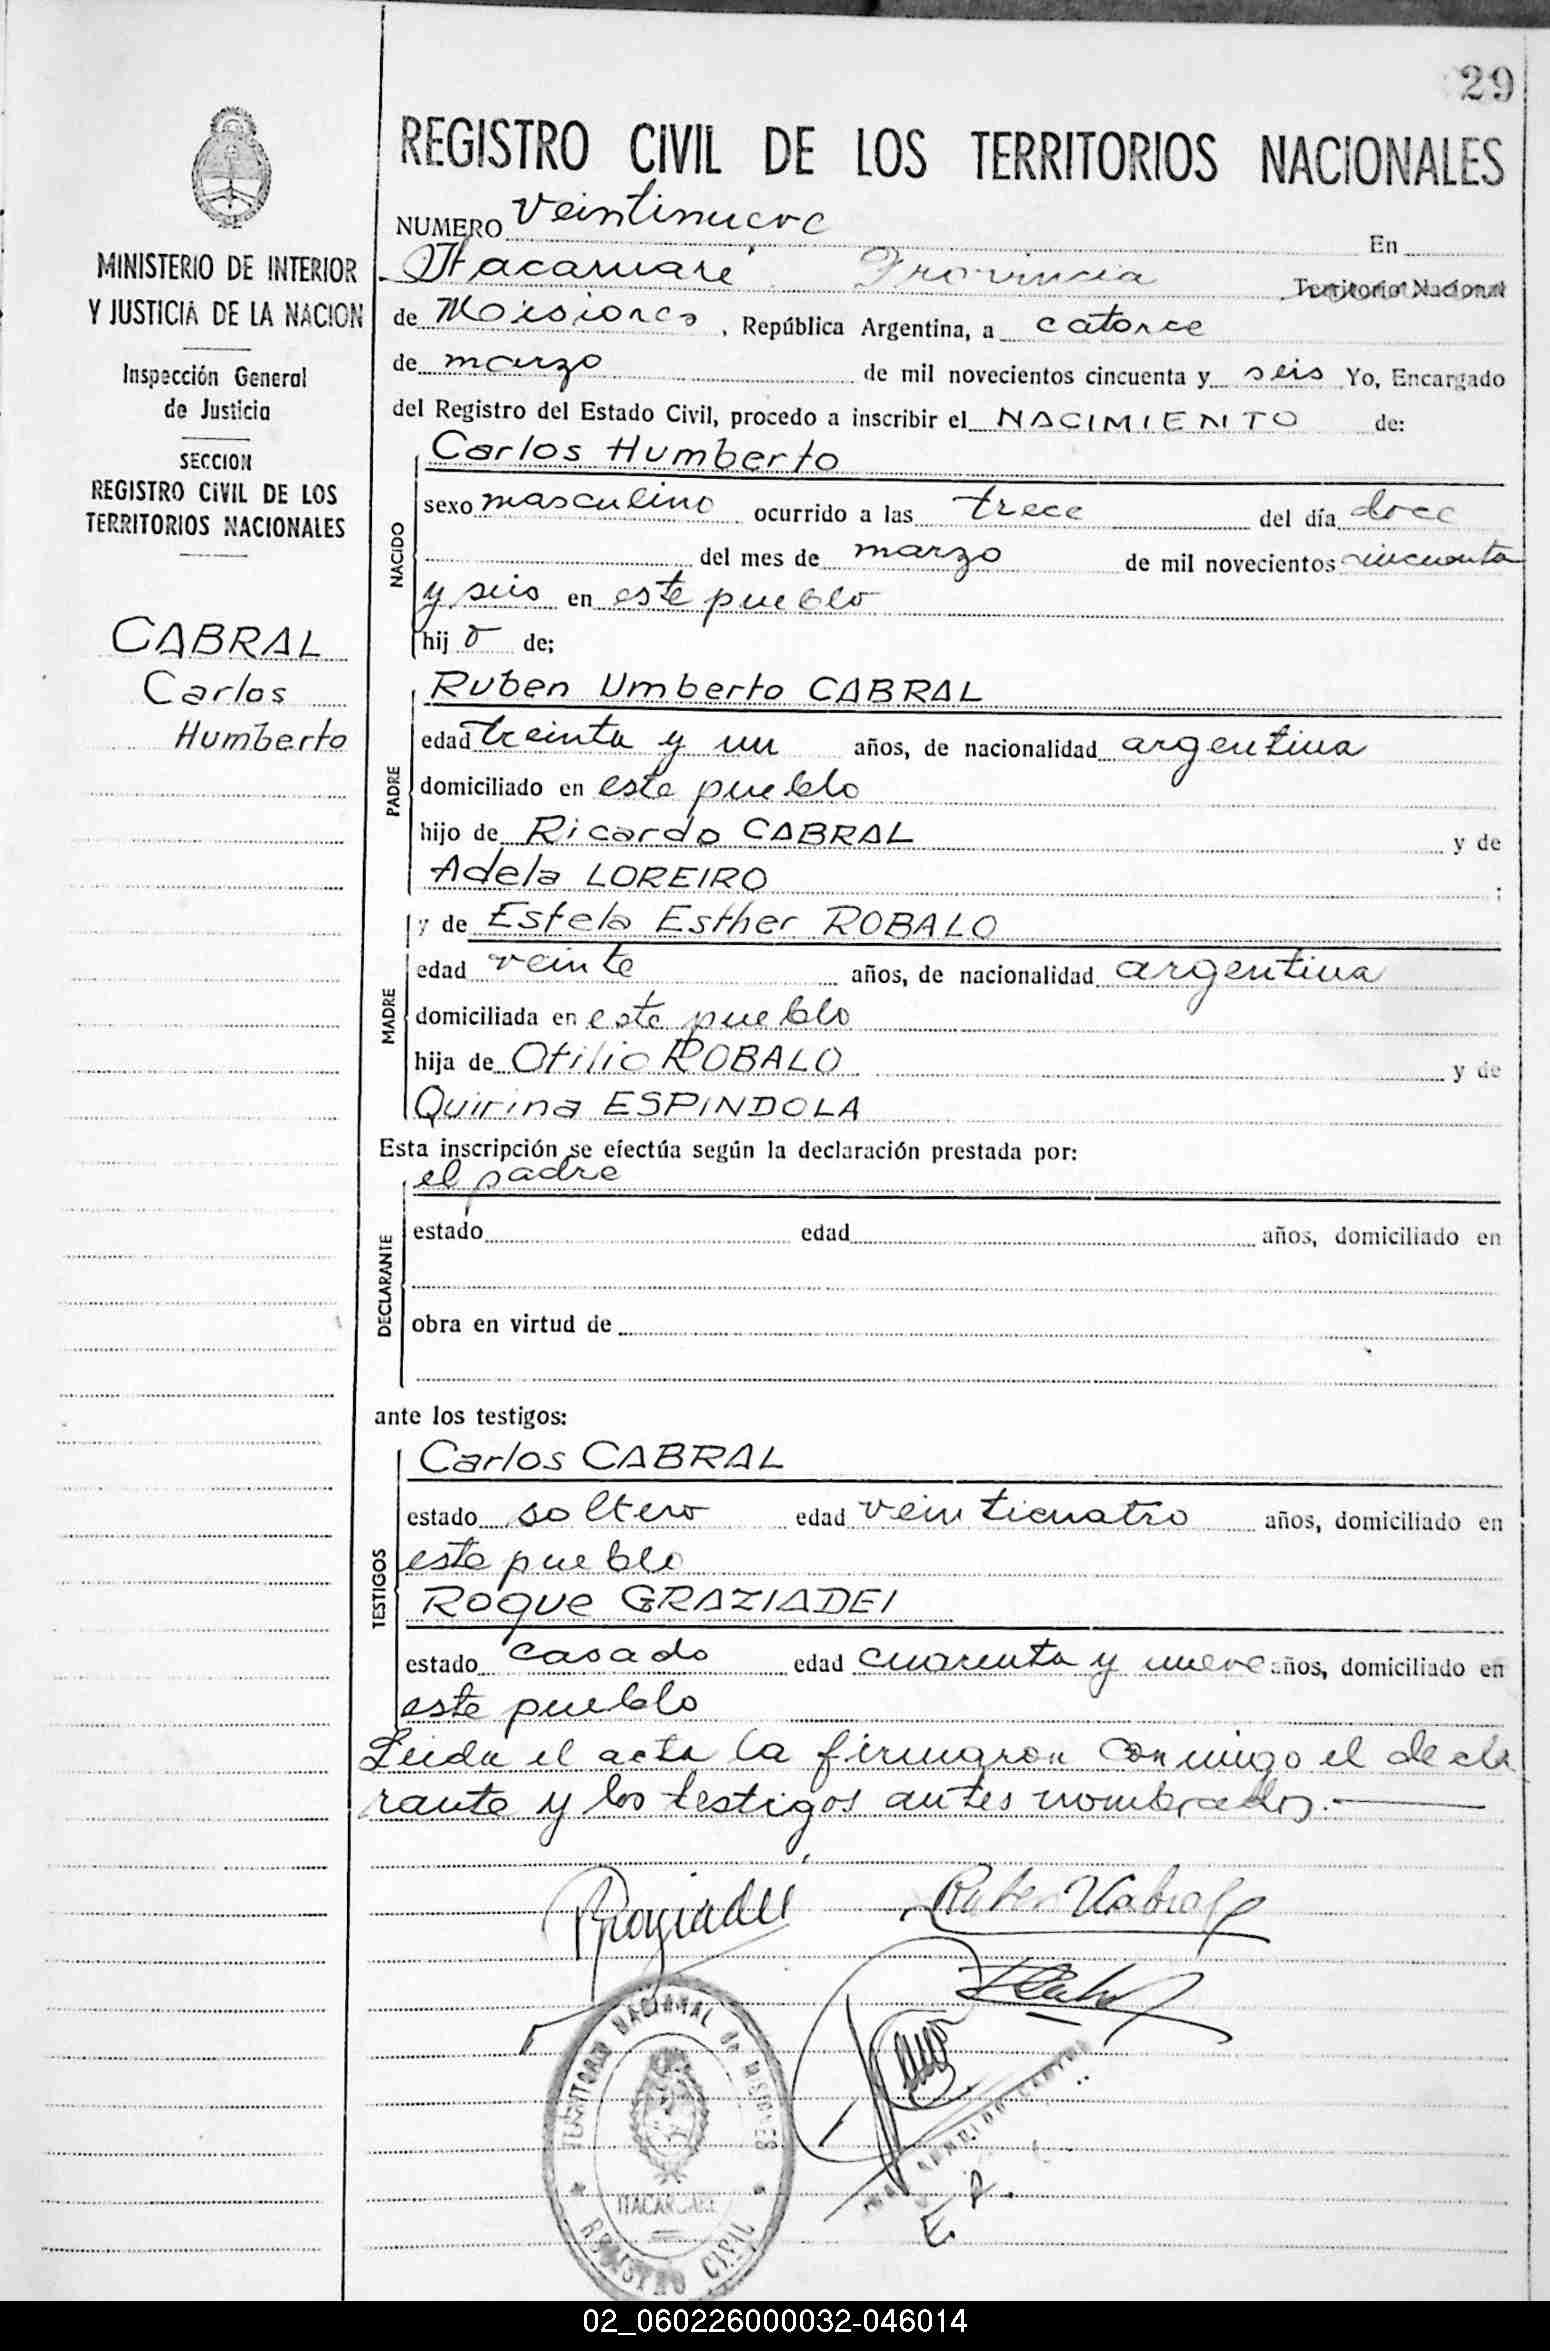 29
REGISTRO CIVIL DE LOS TERRITORIOS NACIONALES
MINISTERIO DE INTERIOR
Y JUSTICIA DE LA NACION
Inspección General
de Justicia
SECCION
REGISTRO CIVIL DE LOS
TERRITORIOS NACIONALES
CABRAL
Carlos
Humberto
NUMERO veintinueve En
Itacaruaré Provincia Territorio Nacional
de Misiones, República Argentina, a catorce
de marzo de mil novecientos cincuenta y seis Yo, Encargado
del Registro del Estado Civil, procedo a inscribir el NACIMIENTO de:
NACIDO
Carlos Humberto
sexo masculino ocurrido a las trece del día doce
del mes de marzo de mil novecientos cincuenta
y seis en este pueblo
hijo de;
PADRE
Ruben Umberto CABRAL
edad treinta y un años, de nacionalidad argentina
domiciliado en este pueblo
hijo de Ricardo CABRAL y de
Adela LOREIRO ;
MADRE
y de Estela Esther ROBALO
edad veinte años, de nacionalidad argentina
domiciliada en este pueblo
hija de Otilio ROBALO y de
Quirina ESPINDOLA
Esta inscripción se efectúa según la declaración prestada por:
DECLARANTE
el padre
estado edad años, domiciliado en
obra en virtud de
ante los testigos:
TESTIGOS
Carlos CABRAL
estado soltero edad veinticuatro años, domiciliado en
este pueblo
Roque GRAZIADEI
estado casado edad cuarenta y nueve años, domiciliado en
este pueblo
Leida el acta la firmaron conmigo el decla
rante y los testigos antes nombrados.
Ruben U Cabral
TERRITORIO NACIONAL de MISIONES
ITACARUARE
REGISTRO CIVIL
E. R.
02_060226000032-046014